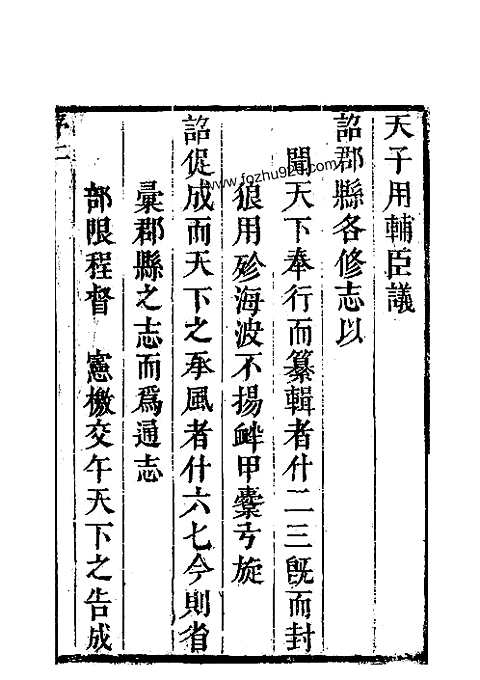 天子用輔臣議
詔郡縣各修志以
聞天下奉行而纂輯者什二三旣而封
狼用殄海波不揚衅甲櫜弓旋
詔促成而天下之承風者什六七今則省
彙郡縣之志而爲通志
部限程督　憲檄交午天下之告成
序二
www.fozhu920.com